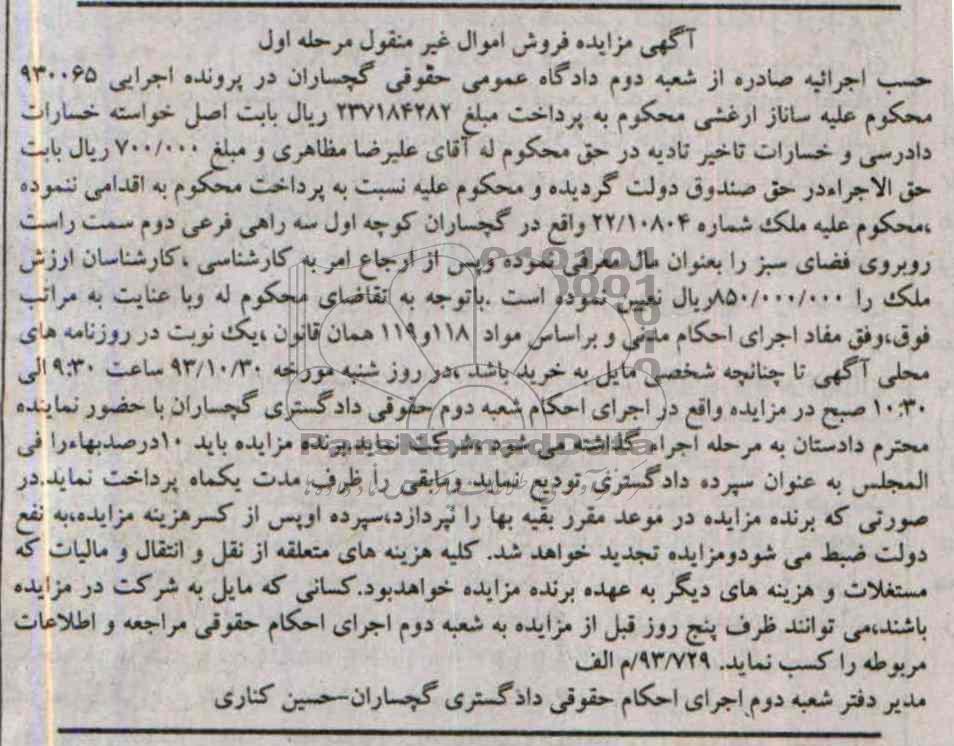 آگهی مزایده فروش اموال غیر منقول مرحله اول
حسب اجرائیه صادره از شعبه دوم دادگاه عمومی حقوقی گچساران در پرونده اجرایی ۹۳۰۰۶۵
محکوم علیه ساناز ارغشی محکوم به پرداخت مبلغ ۲۳۷۱۸۴۲۸۲ ریال بابت اصل خواسته خسارات
دادرسی و خسارات تاخیر تادیه در حق محکوم له آقای علیرضا مظاهری و مبلغ ۷۰۰/۰۰۰ ریال بابت
حق الاجراءدر حق صندوق دولت گردیده و محکوم علیه نسبت به پرداخت محکوم به اقدامی ننموده
،محکوم علیه ملک شماره ۲۲/۱۰۸۰۴ واقع در گچساران کوچه اول سه راهی فرعی دوم سمت راست
روبروی فضای سبز را بعنوان مال معرفی نموده وپس از ارجاع امر به کارشناسی ،کارشناسان ارزش
ملک را ۸۵۰/۰۰۰/۰۰۰ریال تعیین نموده است .باتوجه به تقاضای محکوم له وبا عنایت به مراتب
فوق،وفق مفاد اجرای احکام مدنی و براساس مواد ۱۱۸و۱۱۹ همان قانون ،یک نوبت در روزنامه های
محلی آگهی تا چنانچه شخصی مایل به خرید باشد ،در روز شنبه مورخه ۹۳/۱۰/۳۰ ساعت ۹:۳۰ الی
۱۰:۳۰ صبح در مزایده واقع در اجرای احکام شعبه دوم حقوقی دادگستری گچساران با حضور نماینده
محترم دادستان به مرحله اجراء گذاشته می شود ،شرکت نماید.برنده مزایده باید ۱۰درصدبهاءرا فی
المجلس به عنوان سپرده دادگستری تودیع نماید ومابقی را ظرف مدت یکماه پرداخت نماید.در
صورتی که برنده مزایده در موعد مقرر بقیه بها را نپردازد،سپرده اوپس از کسرهزینه مزایده،به نفع
دولت ضبط می شودومزایده تجدید خواهد شد. کلیه هزینه های متعلقه از نقل و انتقال و مالیات که
مستغلات و هزینه های دیگر به عهده برنده مزایده خواهدبود.کسانی که مایل به شرکت در مزایده
باشند،می توانند ظرف پنج روز قبل از مزایده به شعبه دوم اجرای احکام حقوقی مراجعه و اطلاعات
مربوطه را کسب نماید. ۹۳/۷۲۹/م الف
مدیر دفتر شعبه دوم اجرای احکام حقوقی دادگستری گچساران-حسین کناری
ParsNamadData